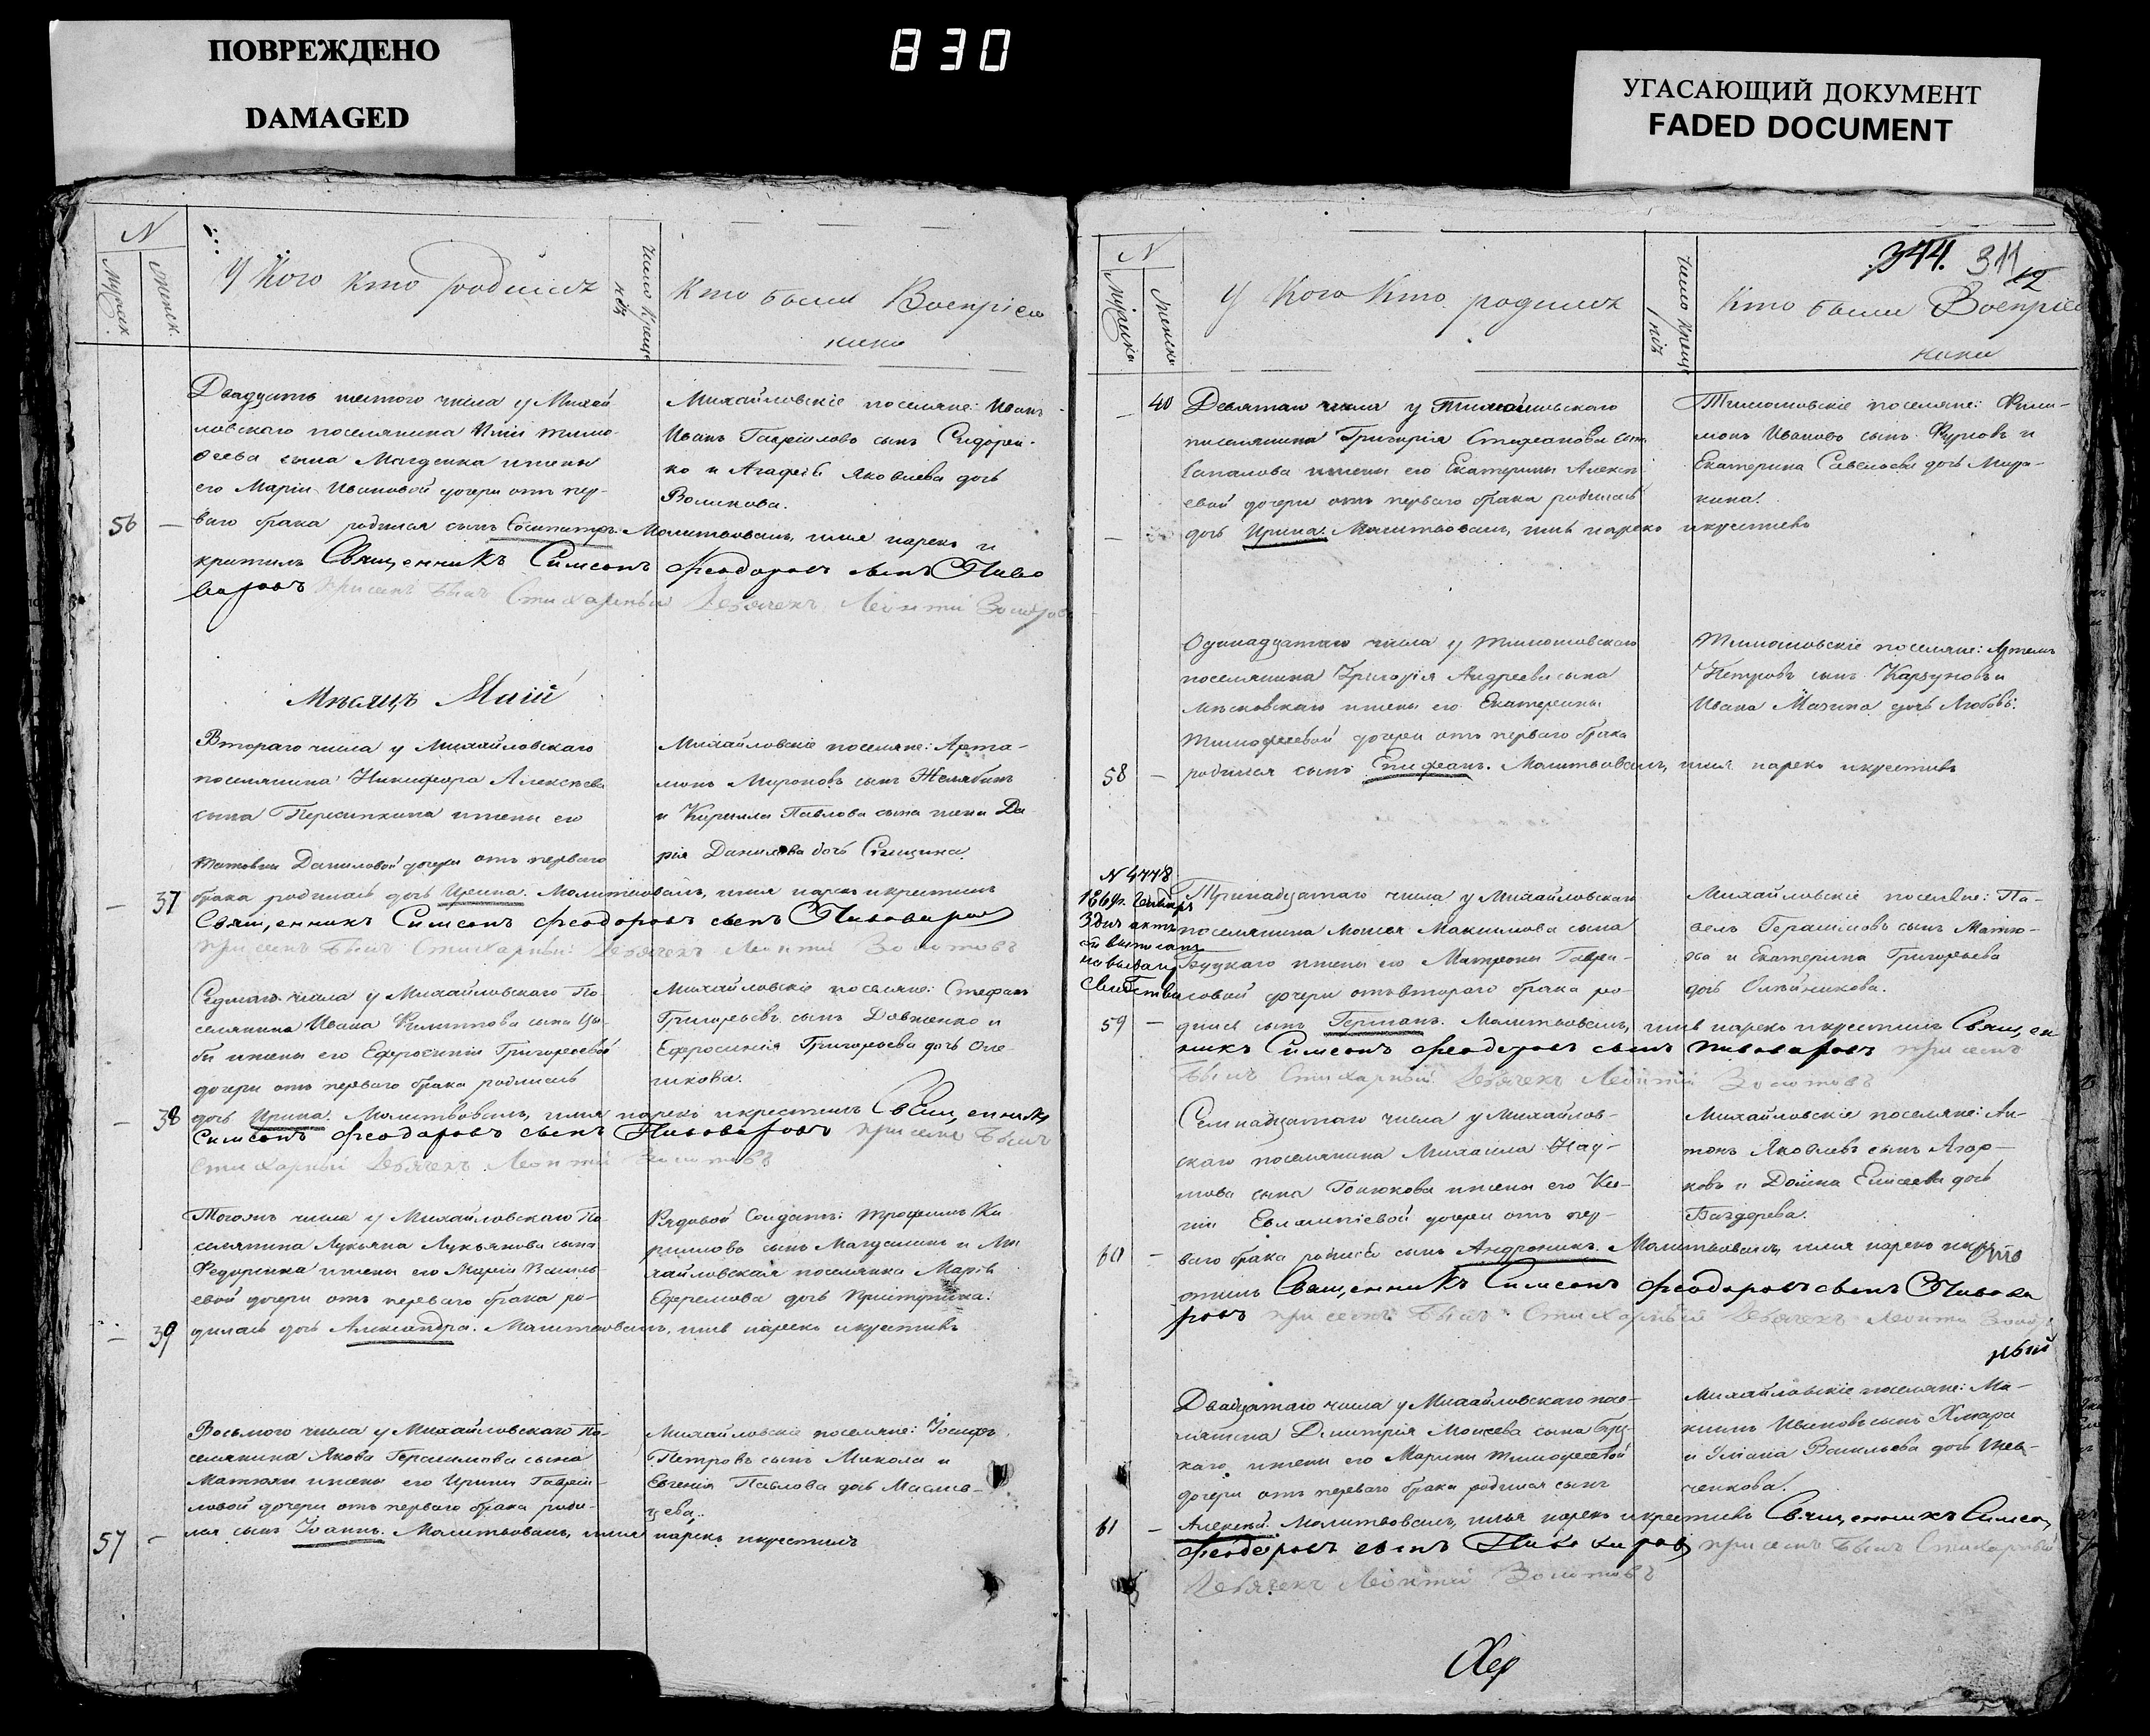 ПОВРЕЖДЕНО
DAMAGED
830
УГАСАЮЩИЙ ДОКУМЕНТ
FADED DOCUMENT
N
Мужск.
Женск.
У Кого кто родился
Число Креще
нія
Кто были Воспріем
ники
Двадцать шестого числа у Михай
ловскаго поселянина
сына Магденка и жены
его Маріи Ивановой дочери отъ пер-
56 — ваго брака родился сынъ Сосипатръ. Молитвовалъ, имя нарекъ и
крестилъ Священникъ Симеонъ Феодоровъ сынъ Пиво
варовъ при семъ былъ Стихарный Дьячекъ Леонтій Золотовъ
Михайловскіе поселяне: Иванъ
Иванъ Гавріиловъ сынъ Сидорен-
ко и Агафія Яковлева дочь
Воликова.
Мѣсяцъ Маій
Втораго числа у Михайловскаго
поселянина Никифора Алексѣева
сына Пересипкина и жены его
Даниловой дочери отъ перваго
— 37 брака родилась дочь Ирина. Молитвовалъ, имя нарекъ и крестилъ
Священникъ Симеонъ Феодоровъ сынъ Пивоваровъ
при семъ былъ Стихарный Дьячекъ Леонтій Золотовъ
Михайловскіе поселяне: Арта-
монъ Мироновъ сынъ Желябинъ
и Кирилла Павлова сына жена Да
рія Данилова дочь
Седмаго числа у Михайловскаго По-
селянина Ивана Филиппова сына Цы-
бы и жены его Ефросиніи Григорьевой
дочери отъ перваго брака родилась
— 38 дочь Ирина. Молитвовалъ, имя нарекъ и крестилъ Священникъ
Симеонъ Феодоровъ сынъ Пивоваровъ при семъ былъ
Стихарный Дьячекъ Леонтій Золотовъ
Михайловскіе поселяне: Стефанъ
Григорьевъ сынъ Довженко и
Ефросинія Григорьева дочь
Тогожъ числа у Михайловскаго По-
селянина Лукьяна Лукьянова сына
Федоринка и жены его Маріи Василь-
евой дочери отъ перваго брака ро-
— 39 дилась дочь Александра. Молитвовалъ, имя нарекъ и крестилъ
Рядовой Солдатъ: Трофимъ Ки-
рилловъ сынъ Магдалинъ и Ми
хайловская поселянка Марія
Ефремова дочь Приступina.
Восьмого числа у Михайловскаго По-
селянина Якова Герасимова сына
Матюхи и жены его Ирины Гаврiи-
ловой дочери отъ перваго брака роди-
57 — лся сынъ Іоаннъ. Молитвовалъ, имя нарекъ и крестилъ
Михайловскіе поселяне: Іосифъ
Петровъ сынъ Микола и
Евгенія Павлова дочь Маслив-
цева.
344. 311
12
N
Мужска
Женска
У Кого Кто родился
Число Креще
нія
Кто были Воспріем
ники
— 40 Девятаго числа у Тимошовскаго
поселянина Григорія Стефанова сына
Сапалова и жены его Екатерины Алексѣ
евой дочери отъ перваго брака родилась
— дочь Ирина. Молитвовалъ, имя нарекъ и крестилъ
Тимошовскіе поселяне: Фили-
монъ Ивановъ сынъ Фурсовъ и
Екатерина Савельева дочь Миро-
нина.
Одинадцатаго числа у Тимошовскаго
поселянина Григорія Андреева сына
Лисковскаго и жены его Екатерины
Тимофеевой дочери отъ перваго брака
58 — родился сынъ Епифанъ. Молитвовалъ, имя нарекъ и крестилъ
Тимошовскіе поселяне: Артемъ
Петровъ сынъ Карзуновъ и
Ивана Мазина дочь Любовь.
N 4778
1864г. Октябр
3 дня актъ
сей выписанъ
на выдачу
Свидѣтельства
Тринадцатаго числа у Михайловскаго
поселянина Моисея Максимова сына
Буцкаго и жены его Матроны Гаврі-
иловой дочери отъ втораго брака ро-
59 — дился сынъ Германъ. Молитвовалъ, имя нарекъ и крестилъ Священ
никъ Симеонъ Феодоровъ сынъ Пивоваровъ при семъ
былъ Стихарный Дьячекъ Леонтій Золотовъ
Михайловскіе поселяне: Па-
велъ Герасимовъ сынъ Матю-
ха и Екатерина Григорьева
дочь Олейникова.
Семнадцатаго числа у Михайлов-
скаго поселянина Михаила Нау-
мова сына Гонюкова и жены его Ксе-
ніи Евлампіевой дочери отъ пер-
60 — ваго брака родился сынъ Андроникъ. Молитвовалъ, имя нарекъ и кре
стилъ Священникъ Симеонъ Феодоровъ сынъ Пивова
ровъ при семъ былъ Стихарный Дьячекъ Леонтій
Михайловскіе поселяне: Ан-
тонъ Яковлевъ сынъ Агар-
ковъ и Домна Елисеева дочь
Баздерева.
Двадцатаго числа у Михайловскаго посе-
лянина Дмитрія Моисеева сына
каго и жены его Марины Тимофеевой
дочери отъ перваго брака родился сынъ
61 — Алексѣй. Молитвовалъ, имя нарекъ и крестилъ Священникъ Симеонъ
Феодоровъ сынъ Пивоваровъ при семъ былъ Стихарный
Дьячекъ Леонтій Золотовъ
Михайловскіе поселяне: Ма-
ксимъ Ивановъ сынъ Хмара
и Уліана Васильева дочь Шев-
ченкова.
Хер